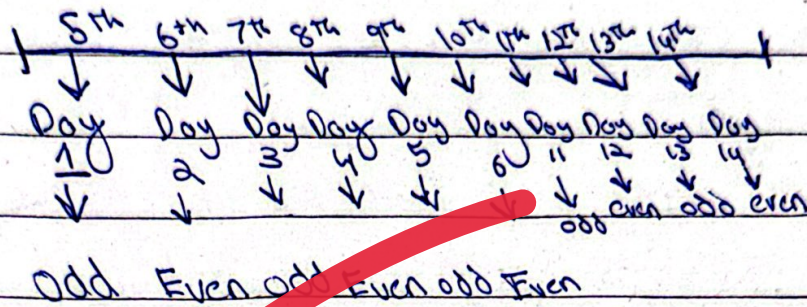 5th 6th 7th 8th 9th 10th 11th 12th 13th 14th
Day Day Day Day Day Day Day Day Day Day
1 2 3 4 5 6 11 12 13 14
odd even odd even
Odd Even odd Even odd Even